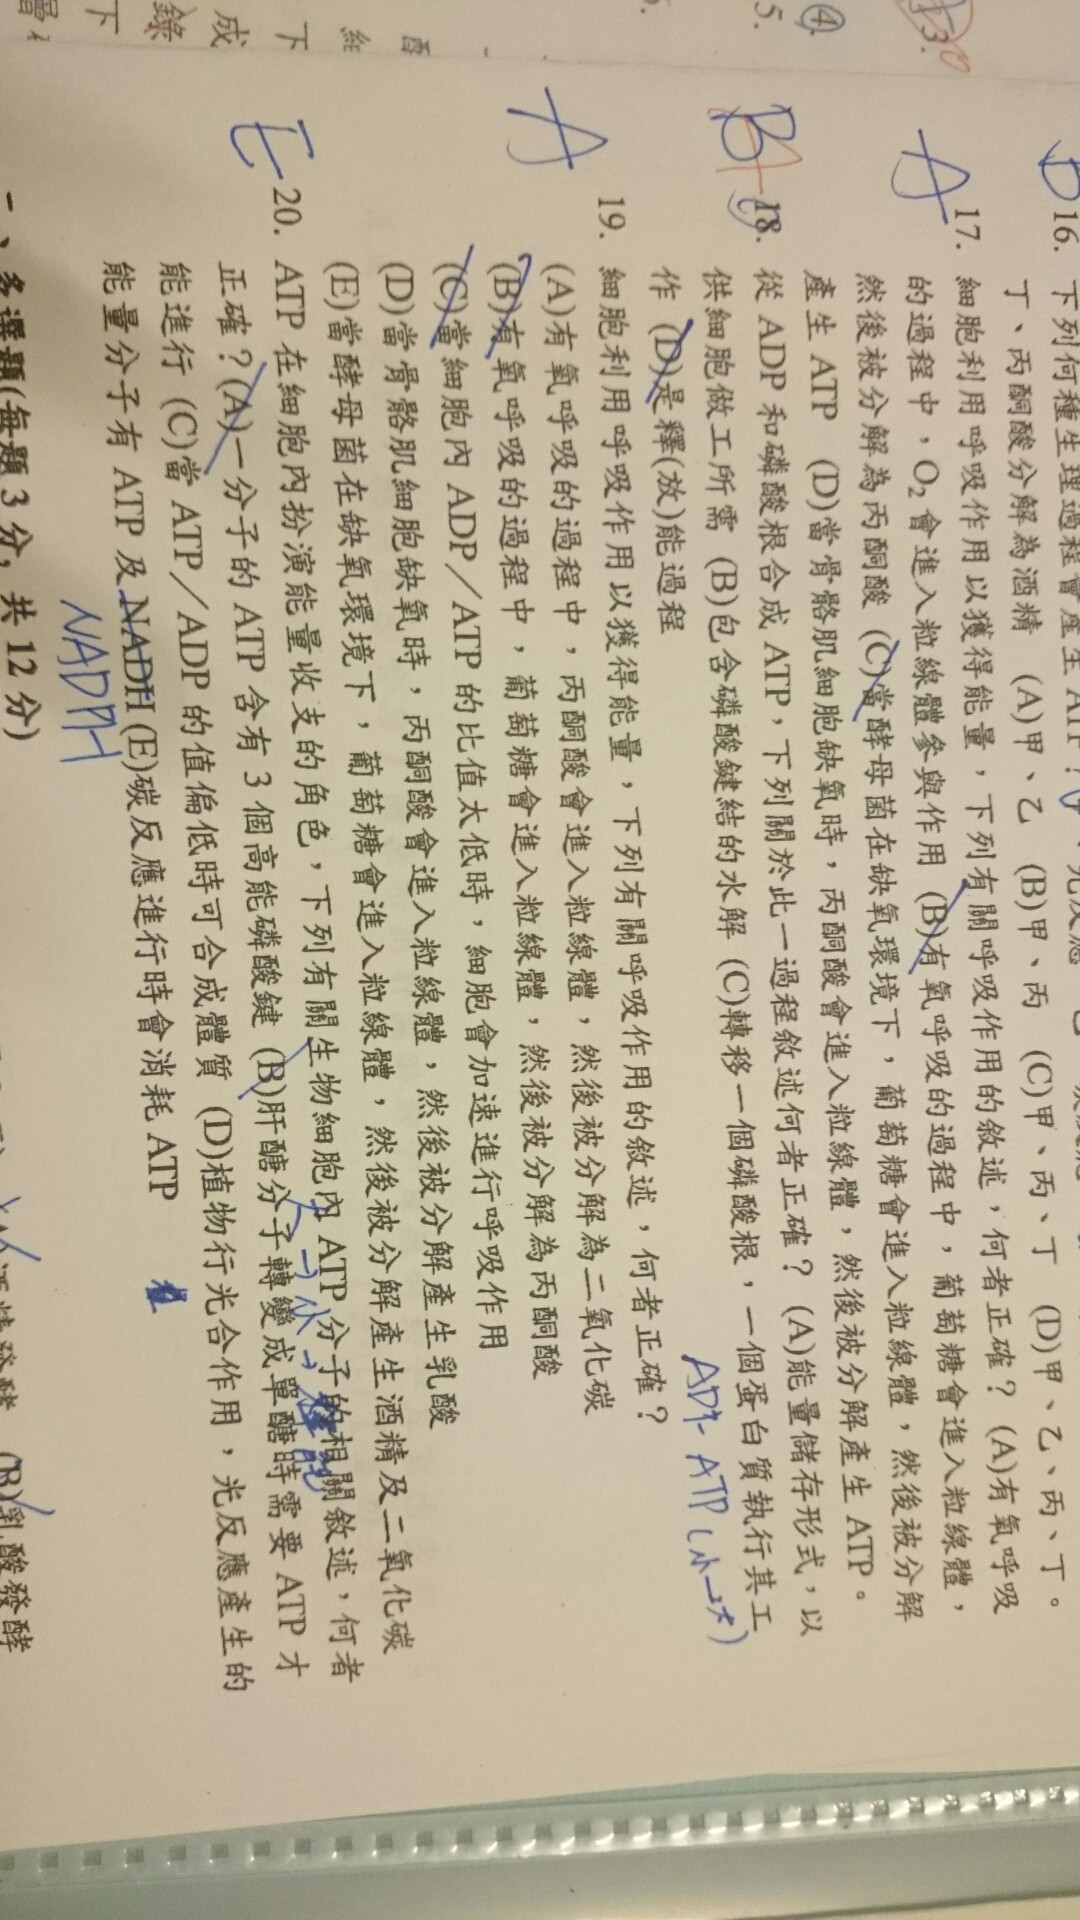 16. 下列何種生理過程會產生 ATP？
丁、丙酮酸分解為酒精 (A)甲、乙 (B)甲、丙 (C)甲、丙、丁 (D)甲、乙、丙、丁。
A
17. 細胞利用呼吸作用以獲得能量，下列有關呼吸作用的敘述，何者正確？(A)有氧呼吸
的過程中，O₂會進入粒線體參與作用 (B)有氧呼吸的過程中，葡萄糖會進入粒線體，
然後被分解為丙酮酸 (C)當酵母菌在缺氧環境下，葡萄糖會進入粒線體，然後被分解
產生 ATP (D)當骨骼肌細胞缺氧時，丙酮酸會進入粒線體，然後被分解產生 ATP。
B A
18. 從 ADP 和磷酸根合成 ATP，下列關於此一過程敘述何者正確？(A)能量儲存形式，以
供細胞做工所需 (B)包含磷酸鍵結的水解 (C)轉移一個磷酸根，一個蛋白質執行其工
作 (D)是釋(放)能過程
ADP→ATP(小→大)
A
19. 細胞利用呼吸作用以獲得能量，下列有關呼吸作用的敘述，何者正確？
(A)有氧呼吸的過程中，丙酮酸會進入粒線體，然後被分解為二氧化碳
(B)有氧呼吸的過程中，葡萄糖會進入粒線體，然後被分解為丙酮酸
(C)當細胞內 ADP／ATP 的比值太低時，細胞會加速進行呼吸作用
(D)當骨骼肌細胞缺氧時，丙酮酸會進入粒線體，然後被分解產生乳酸
(E)當酵母菌在缺氧環境下，葡萄糖會進入粒線體，然後被分解產生酒精及二氧化碳
E
20. ATP 在細胞內扮演能量收支的角色，下列有關生物細胞內 ATP 分子的相關敘述，何者
正確？(A)一分子的 ATP 含有 3 個高能磷酸鍵 (B)肝醣分子轉變成單醣時需要 ATP 才
能進行 (C)當 ATP／ADP 的值偏低時可合成體質 (D)植物行光合作用，光反應產生的
能量分子有 ATP 及 NADH (E)碳反應進行時會消耗 ATP
NADPH
一、多選題(每題 3 分，共 12 分)